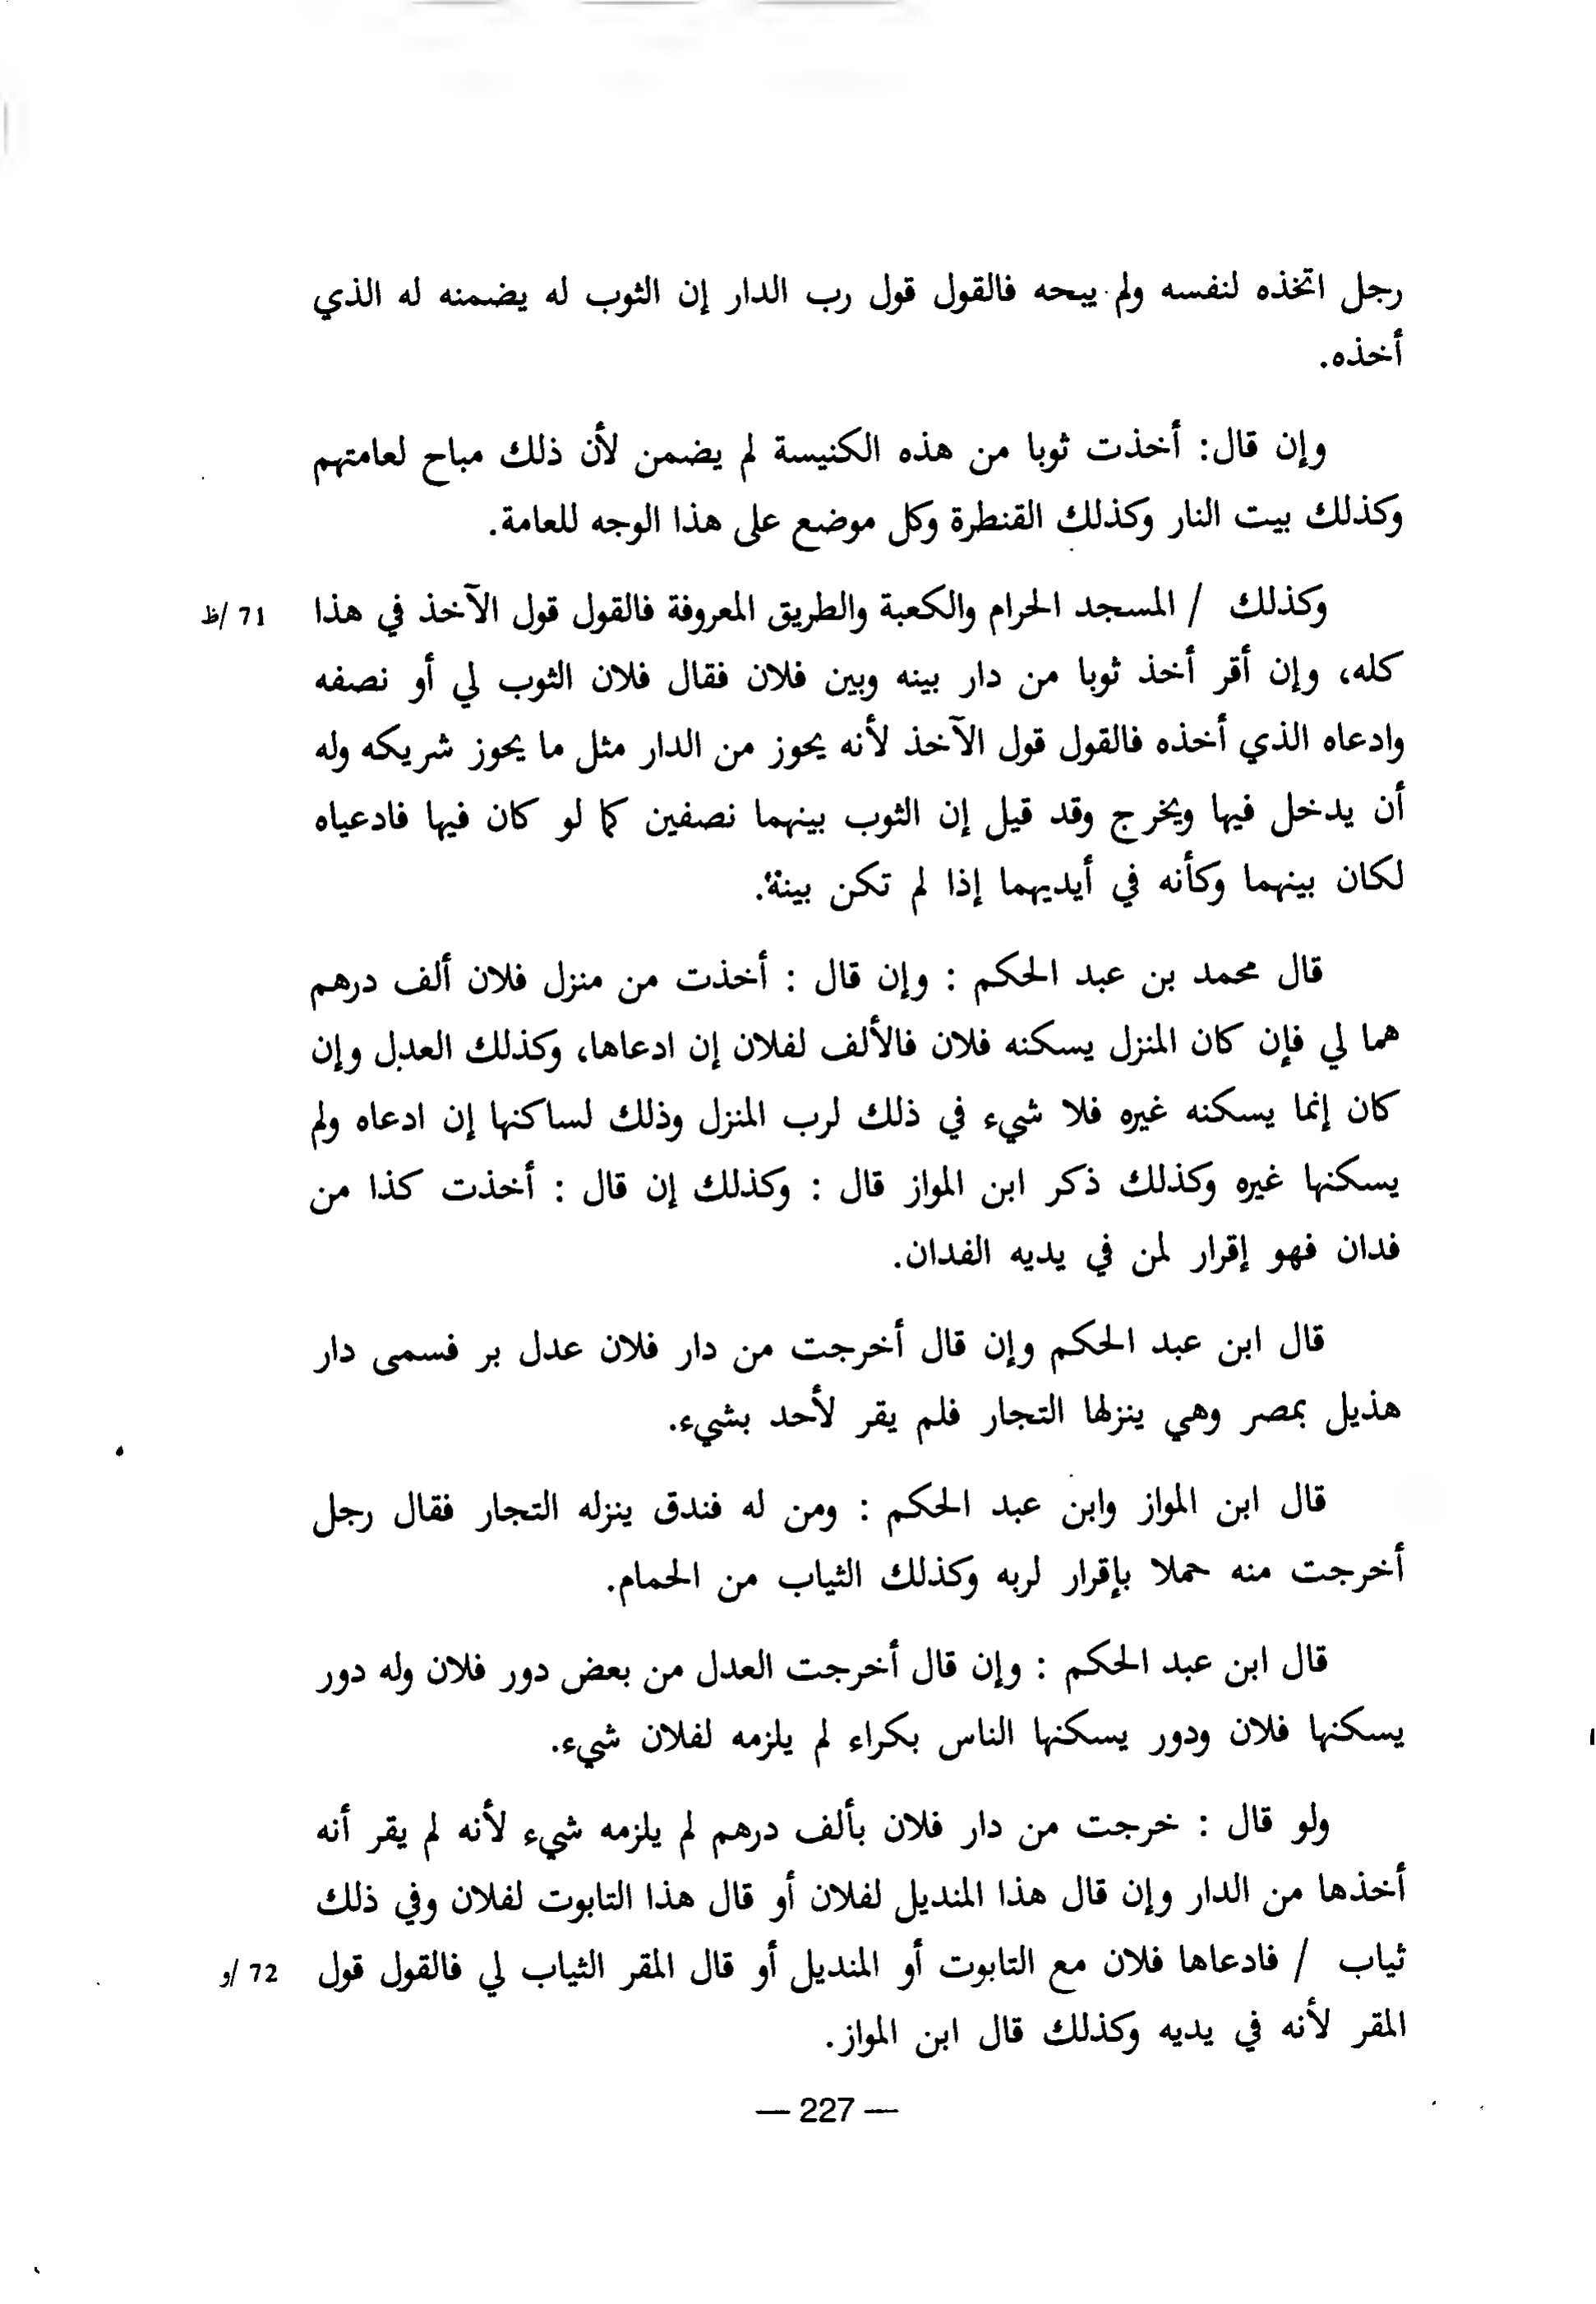 رجل اتخذه لنفسه ولم يبحه فالقول قول رب الدار إن الثوب له يضمنه له الذي
أخذه.
وإن قال: أخذت ثوبا من هذه الكنيسة لم يضمن لأن ذلك مباح لعامتهم
وكذلك بيت النار وكذلك القنطرة وكل موضع على هذا الوجه للعامة.
وكذلك / المسجد الحرام والكعبة والطريق المعروفة فالقول قول الآخذ في هذا 71 /ظ
كله، وإن أقر أخذ ثوبا من دار بينه وبين فلان فقال فلان الثوب لي أو نصفه
وادعاه الذي أخذه فالقول قول الآخذ لأنه يحوز من الدار مثل ما يحوز شريكه وله
أن يدخل فيها ويخرج وقد قيل إن الثوب بينهما نصفين كما لو كان فيها فادعياه
لكان بينهما وكأنه في أيديهما إذا لم تكن بينة.
قال محمد بن عبد الحكم : وإن قال : أخذت من منزل فلان ألف درهم
هما لي فإن كان المنزل يسكنه فلان فالألف لفلان إن ادعاها، وكذلك العدل وإن
كان إنما يسكنه غيره فلا شيء في ذلك لرب المنزل وذلك لساكنها إن ادعاه ولم
يسكنها غيره وكذلك ذكر ابن المواز قال : وكذلك إن قال : أخذت كذا من
فدان فهو إقرار لمن في يديه الفدان.
قال ابن عبد الحكم وإن قال أخرجت من دار فلان عدل بر فسمى دار
هذيل بمصر وهي ينزلها التجار فلم يقر لأحد بشيء.
قال ابن المواز وابن عبد الحكم : ومن له فندق ينزله التجار فقال رجل
أخرجت منه حملا بإقرار لربه وكذلك الثياب من الحمام.
قال ابن عبد الحكم : وإن قال أخرجت العدل من بعض دور فلان وله دور
يسكنها فلان ودور يسكنها الناس بكراء لم يلزمه لفلان شيء.
ولو قال : خرجت من دار فلان بألف درهم لم يلزمه شيء لأنه لم يقر أنه
أخذها من الدار وإن قال هذا المنديل لفلان أو قال هذا التابوت لفلان وفي ذلك
ثياب / فادعاها فلان مع التابوت أو المنديل أو قال المقر الثياب لي فالقول قول 72 /و
المقر لأنه في يديه وكذلك قال ابن المواز.
— 227 —